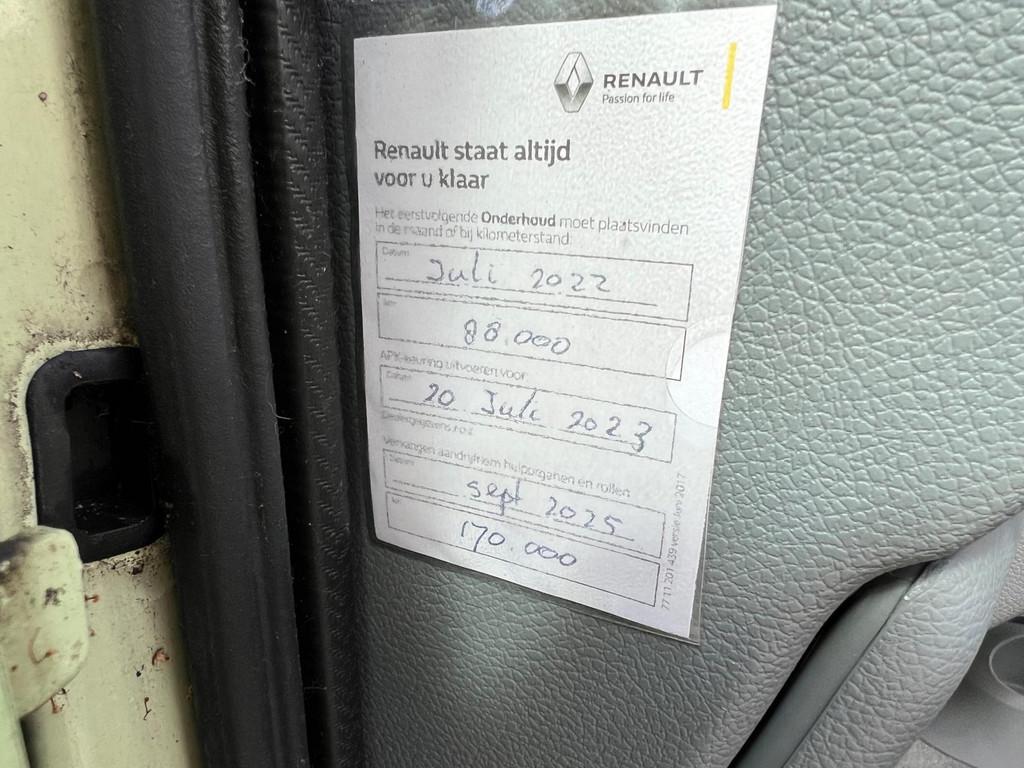 RENAULT
Passion for life
Renault staat altijd
voor u klaar
Het eerstvolgende Onderhoud moet plaatsvinden
in de maand of bij kilometerstand:
Datum
Juli 2022
km
88.000
APK-keuring uitvoeren voor
Datum
20 Juli 2023
Dealergegevens z.o.z.
Vervangen aandrijfriem hulporganen en rollen
Datum
sept 2025
km
170.000
77 11 201 439 versie juni 2017